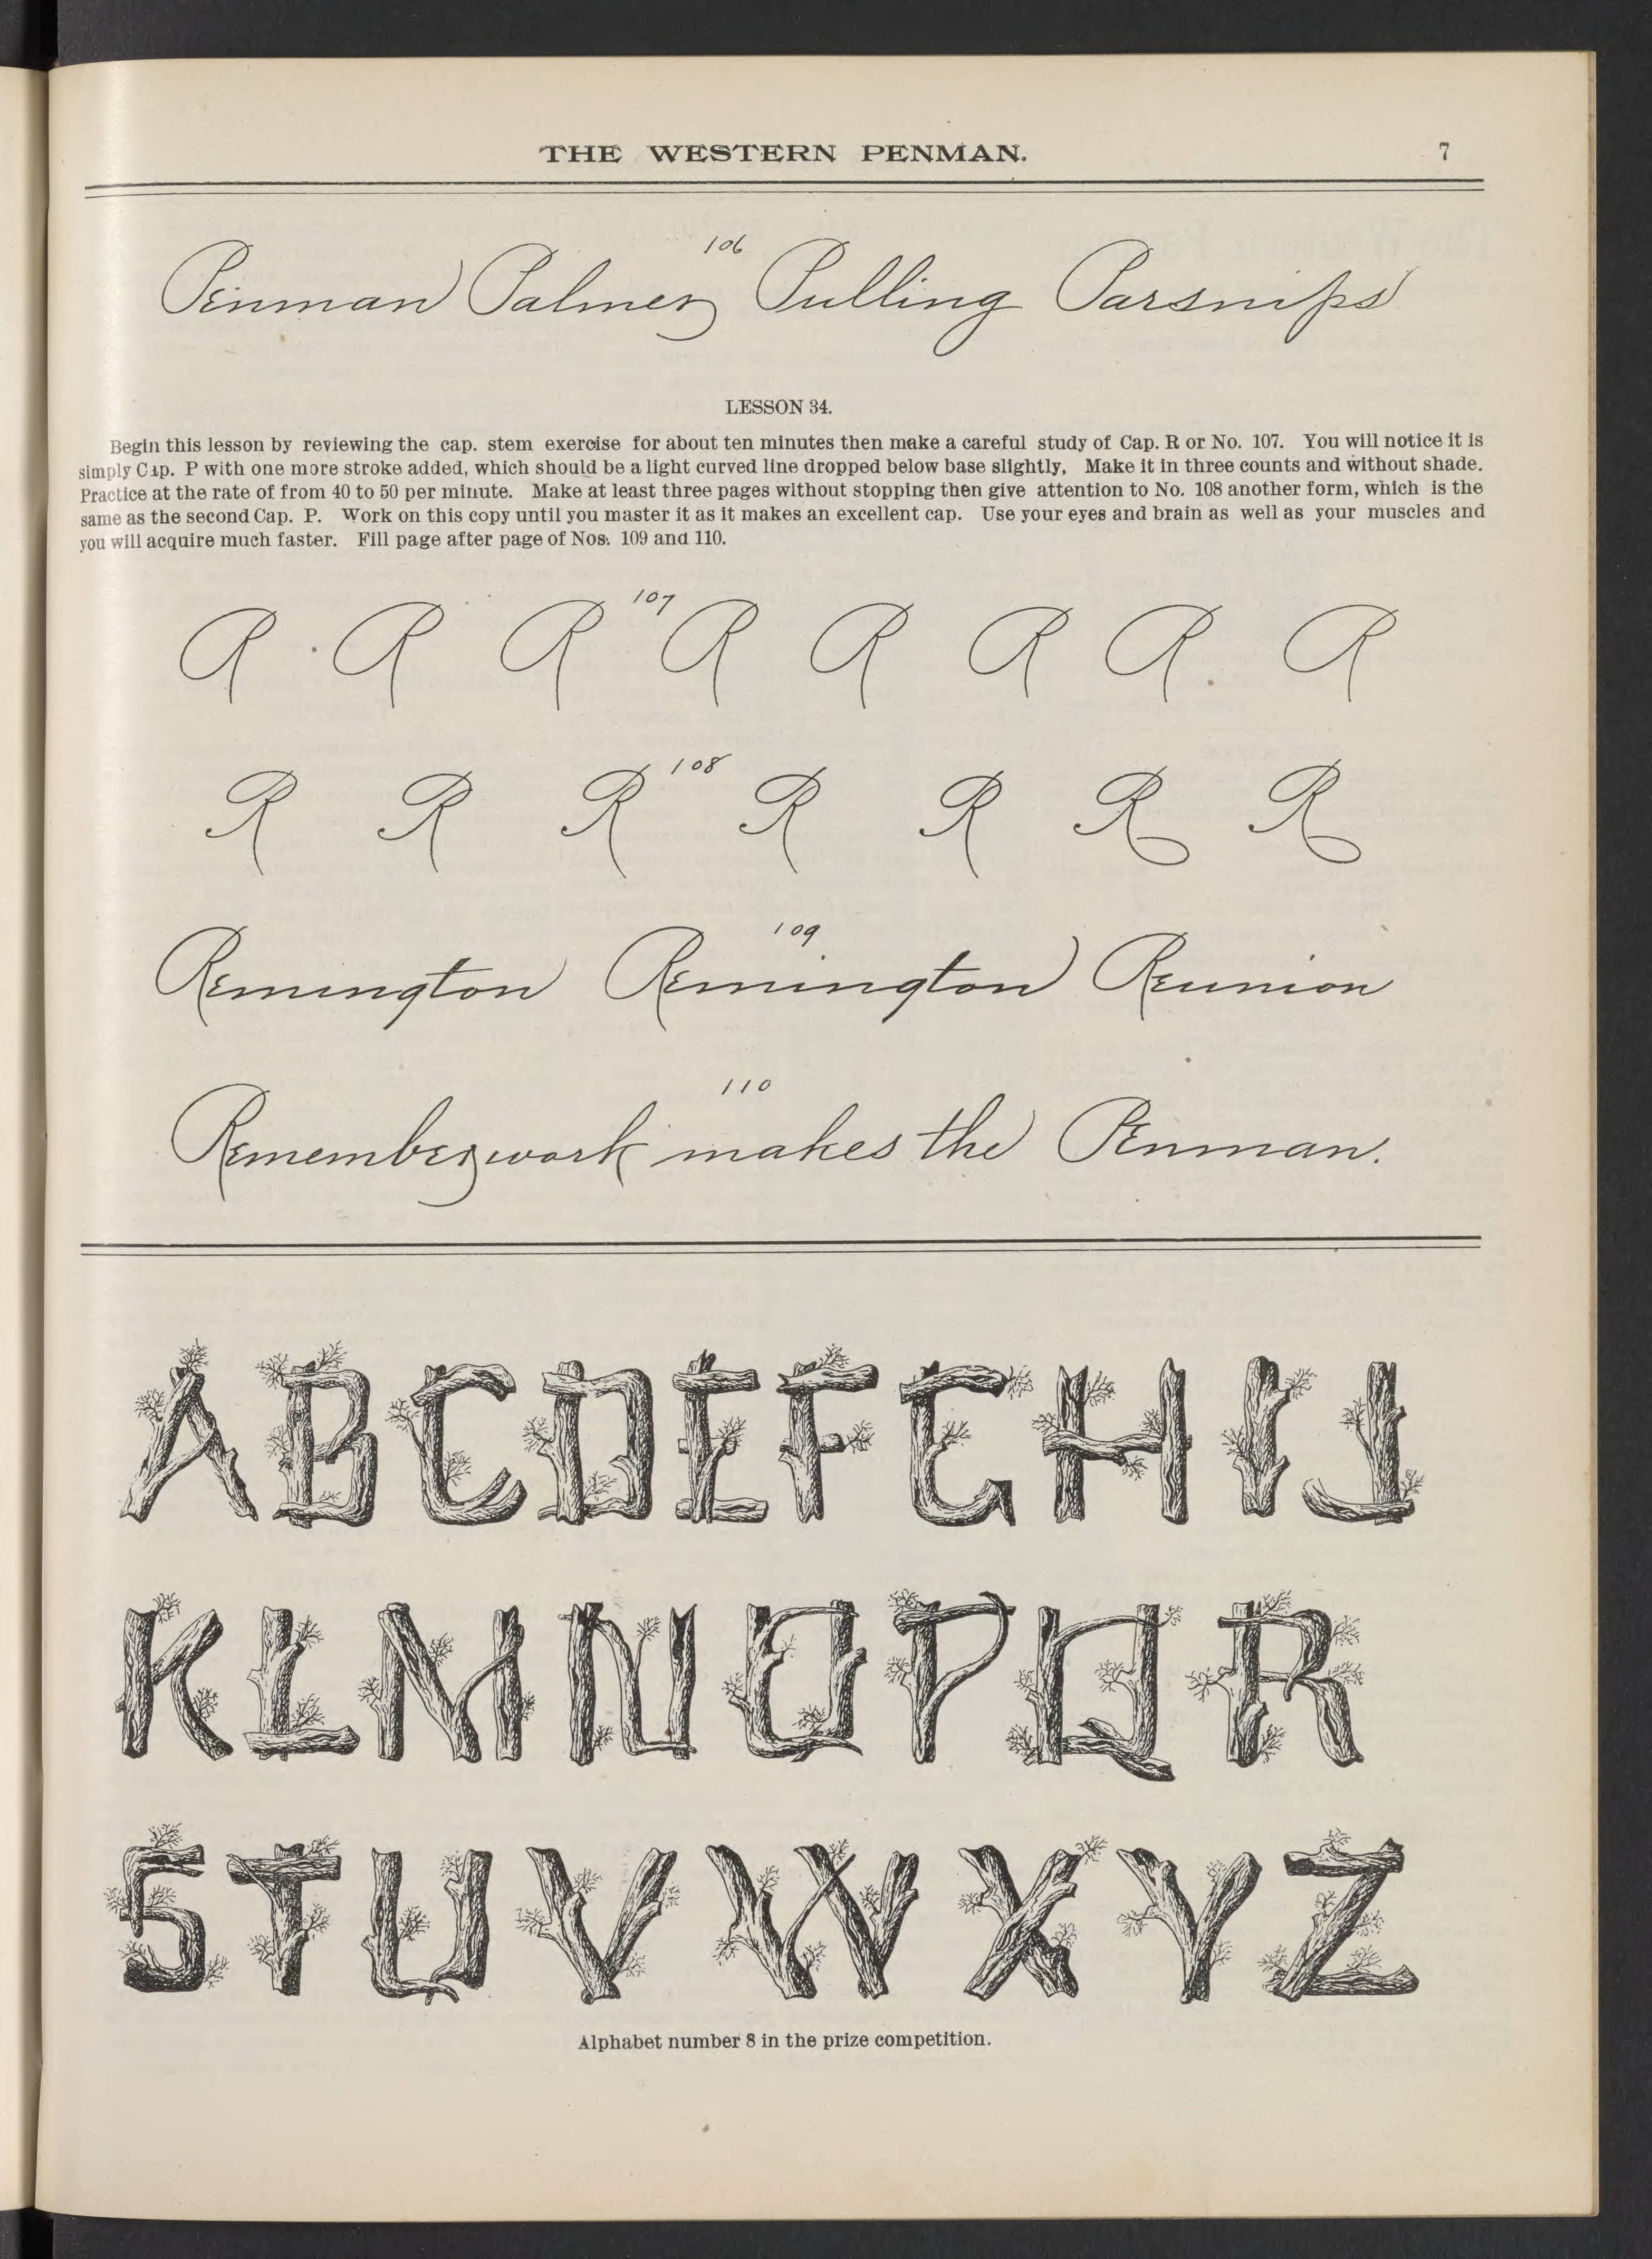 THE WESTERN PENMAN. 7
106
Penman Palmer Pulling Parsnips
LESSON 34.
Begin this lesson by reviewing the cap. stem exercise for about ten minutes then make a careful study of Cap. R or No. 107. You will notice it is
simply Cap. P with one more stroke added, which should be a light curved line dropped below base slightly, Make it in three counts and without shade.
Practice at the rate of from 40 to 50 per minute. Make at least three pages without stopping then give attention to No. 108 another form, which is the
same as the second Cap. P. Work on this copy until you master it as it makes an excellent cap. Use your eyes and brain as well as your muscles and
you will acquire much faster. Fill page after page of Nos. 109 and 110.
107
R R R R R R R R
108
R R R R R R R
109
Remington Remington Reunion
110
Remember work makes the Penman.
A B C D E F G H I J
K L M N O P Q R
S T U V W X Y Z
Alphabet number 8 in the prize competition.